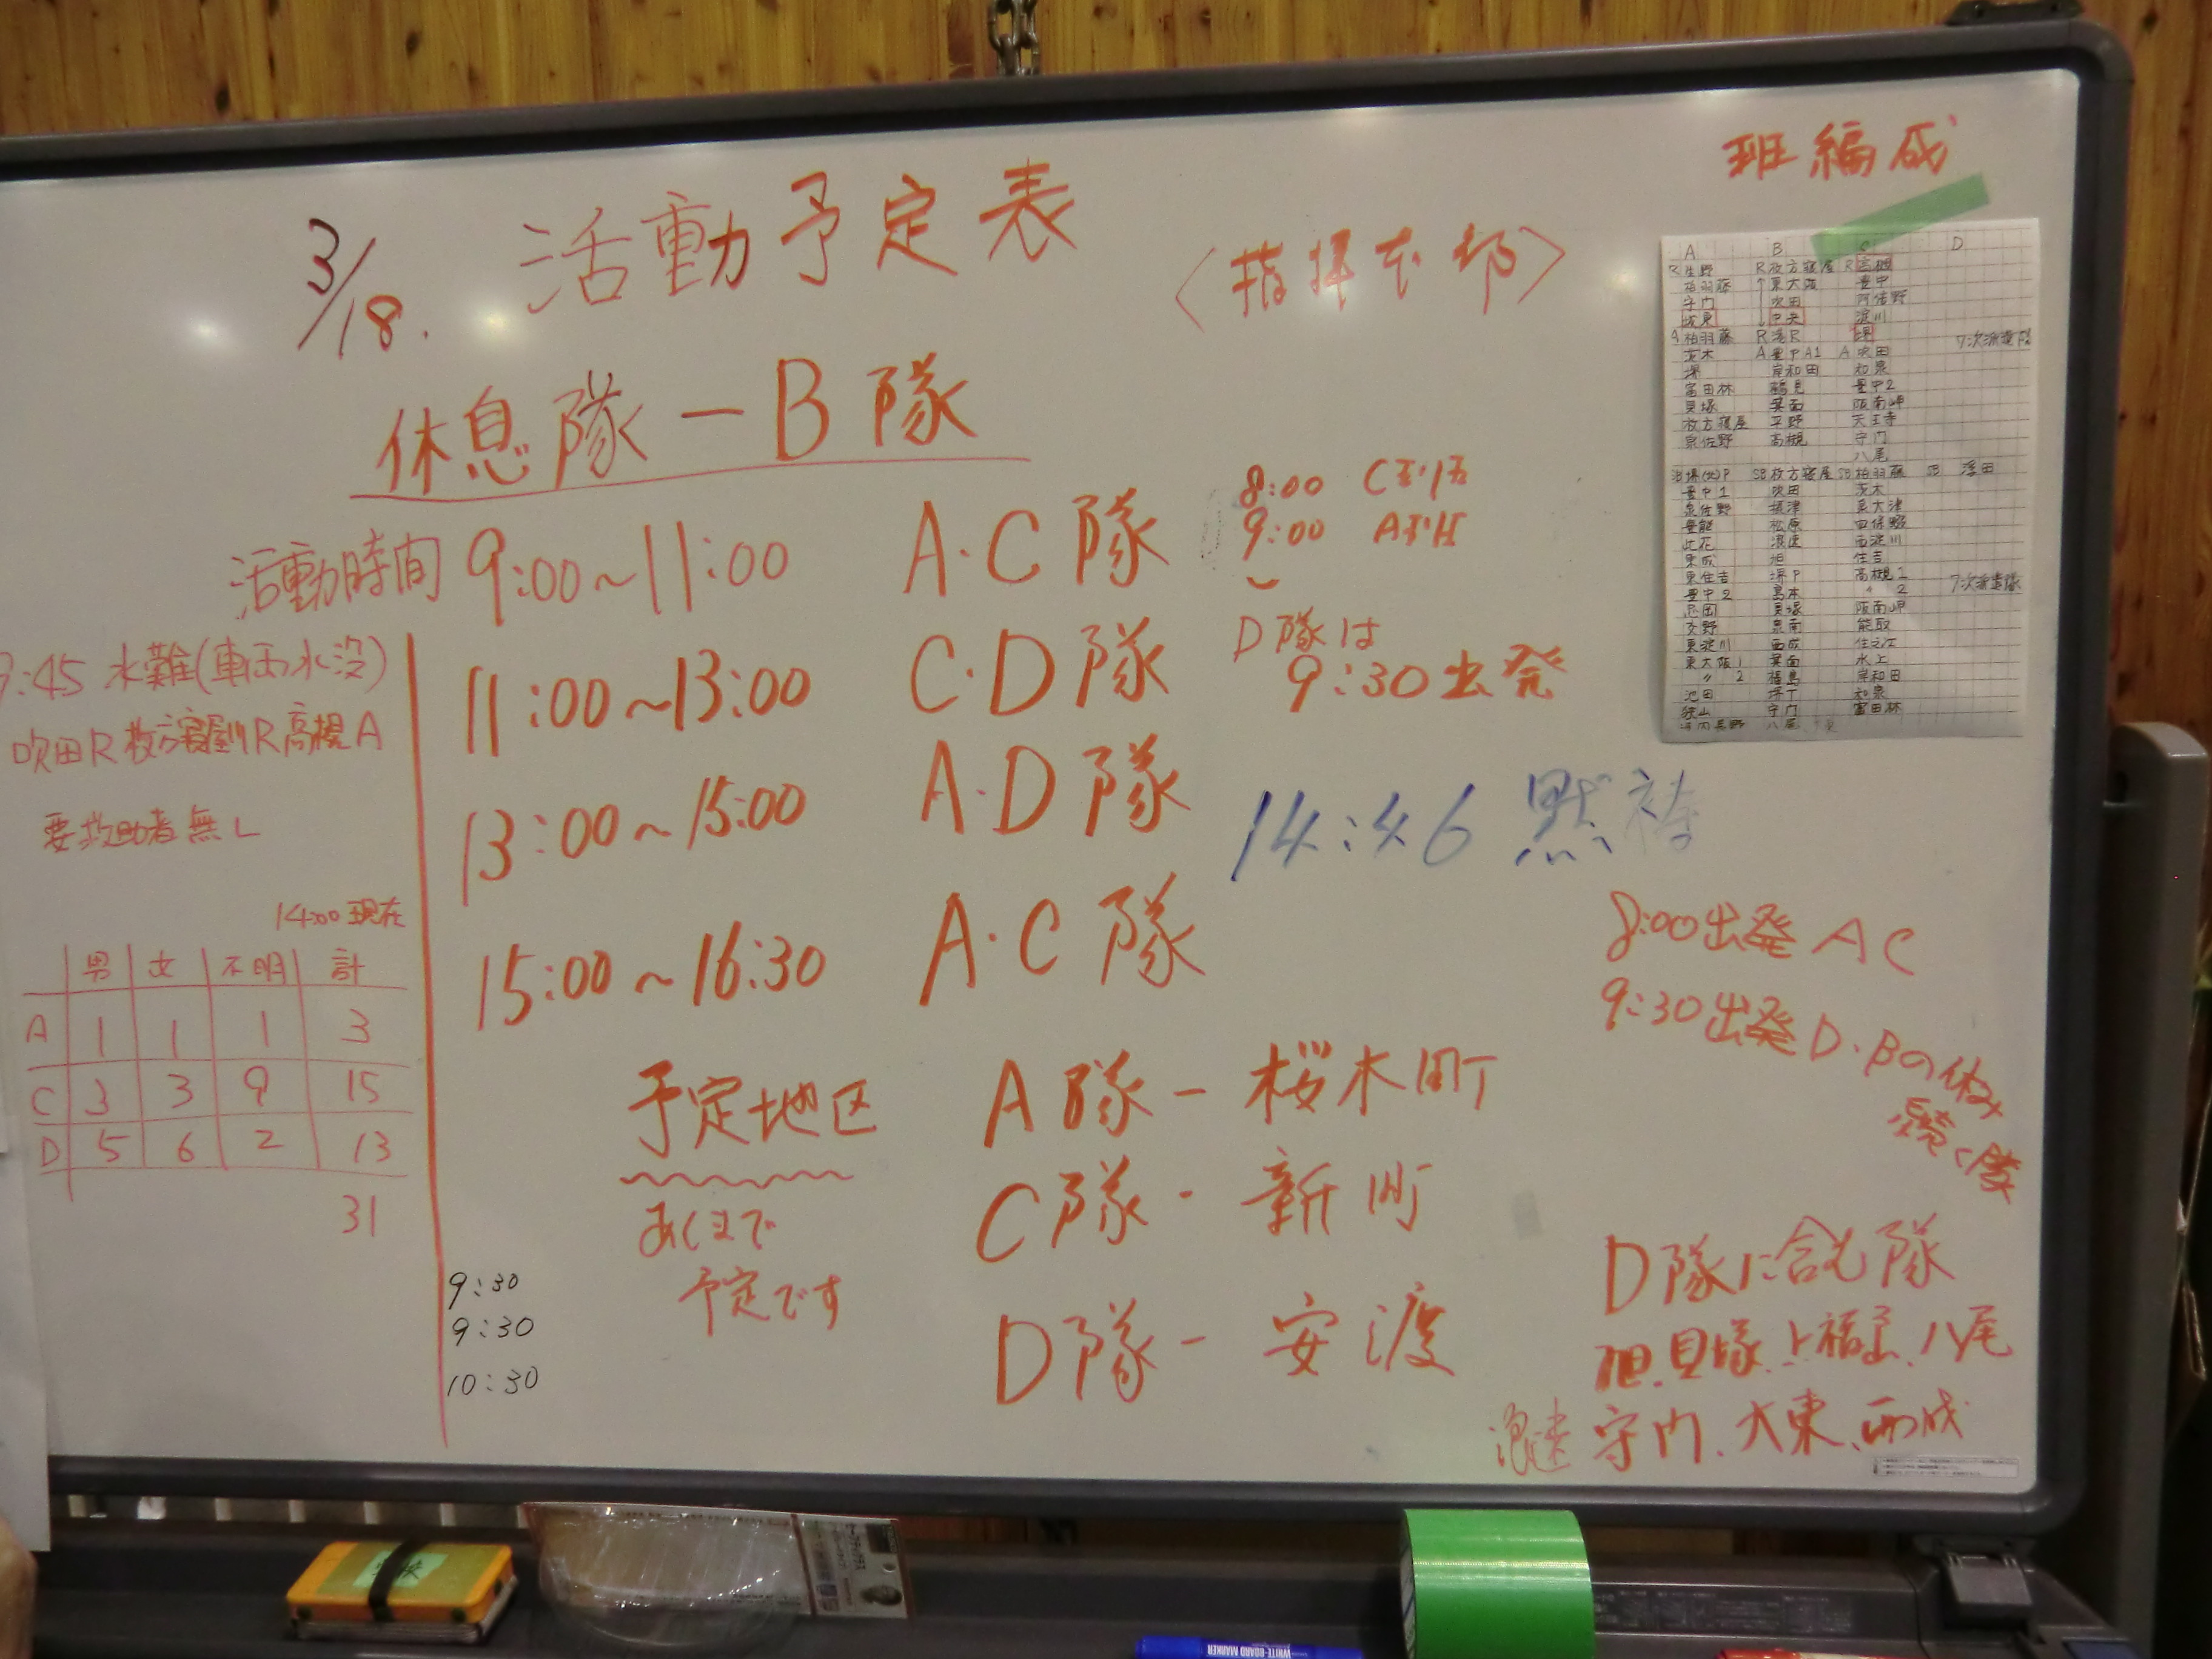 班編成
3/18. 活動予定表
〈指揮本部〉
休息隊-B隊
活動時間 9:00~11:00 A・C隊
11:00~13:00 C・D隊
13:00~15:00 A・D隊
15:00~16:30 A・C隊
8:00
9:00
D隊は
9:30出発
14:46 黙祷
:45 水難(車両水没)
吹田R 枚方寝屋川R 高槻A
要救助者無し
14:00現在
男 女 不明 計
A 1 1 1 3
C 3 3 9 15
D 5 6 2 13
31
9:30
9:30
10:30
予定地区
あくまで
予定です
A隊-桜木町
C隊-新町
D隊-安渡
8:00出発 A C
9:30出発 D・Bの休み
続く隊
D隊に含む隊
旭.貝塚.福島、八尾
浪速 守門、大東、西成
A B C D
R生野 R枚方寝屋 R高槻
柏羽藤 東大阪 豊中
守門 吹田
城東 中央 淀川
A柏羽藤 R 堺
茨木 A A吹田 7次派遣隊
堺 岸和田 和泉
富田林 鶴見 豊中2
貝塚 箕面 阪南岬
枚方寝屋 平野 天王寺
泉佐野 高槻 守門
八尾
SB枚方寝屋 SB柏羽藤 SB
豊中1 吹田 茨木
泉佐野 摂津 泉大津
豊能 松原
此花 浪速 西淀川
東成 旭 住吉
東住吉 堺P 高槻1
豊中2 島本 〃 2 7次派遣隊
貝塚 阪南岬
交野 泉南 熊取
東淀川 西成 住之江
東大阪1 箕面 水上
〃 2 福島 岸和田
池田 堺T 和泉
狭山 守門 富田林
河内長野 八尾
WHITE-BOARD MARKER